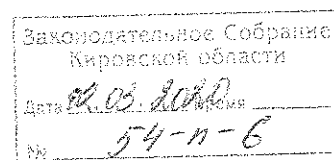 Законодательное Собрание
Кировской области
Дата 02.03.2020 Время
№ 54-п-6